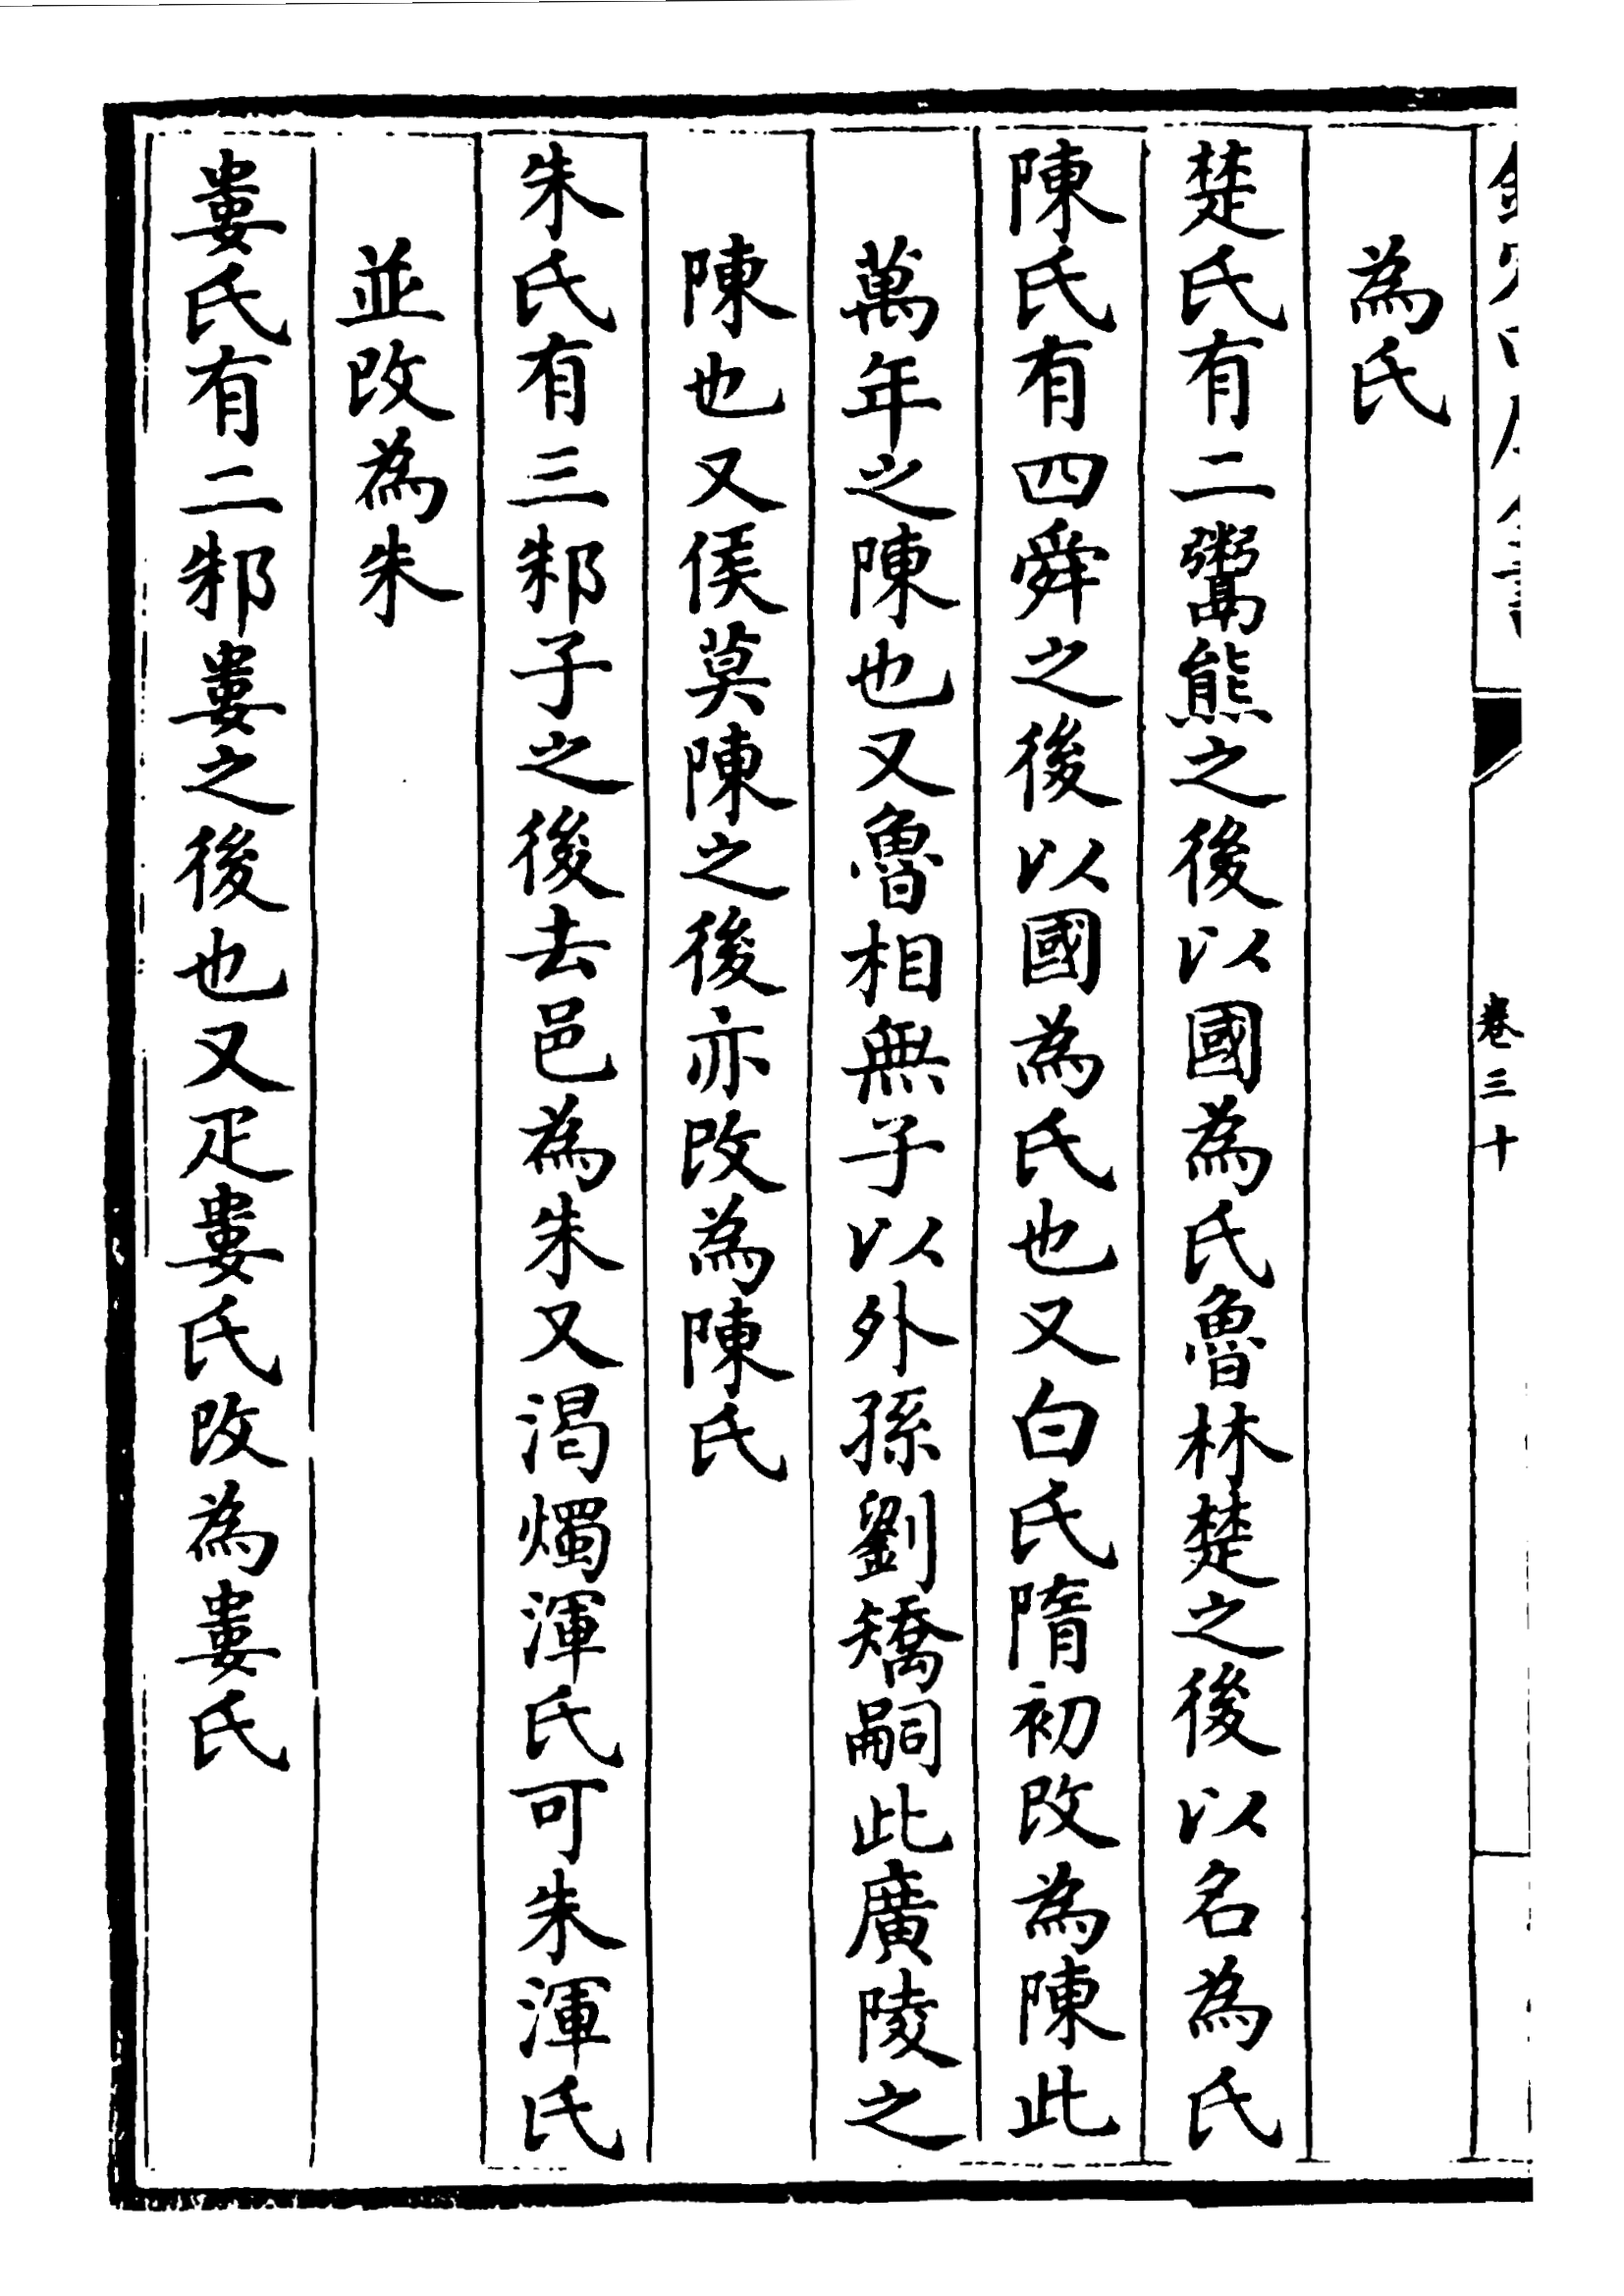 為氏
楚氏有二鬻熊之後以國為氏魯林楚之後以名為氏
陳氏有四舜之後以國為氏也又白氏隋初改為陳此
萬年之陳也又魯相無子以外孫劉矯嗣此廣陵之
陳也又侯莫陳之後亦改為陳氏
朱氏有三邾子之後去邑為朱又渴燭渾氏可朱渾氏
並改為朱
婁氏有二邾婁之後也又疋婁氏改為婁氏
卷三十